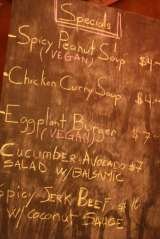 Specials
- Spicy Peanut Soup $4
(VEGAN)
- Chicken Curry Soup $4
- Eggplant Burger $7
(VEGAN)
- Cucumber & Avocado $7
SALAD w/ BALSAMIC
Spicy JERK BEEF $10
w/ COCONUT SAUCE